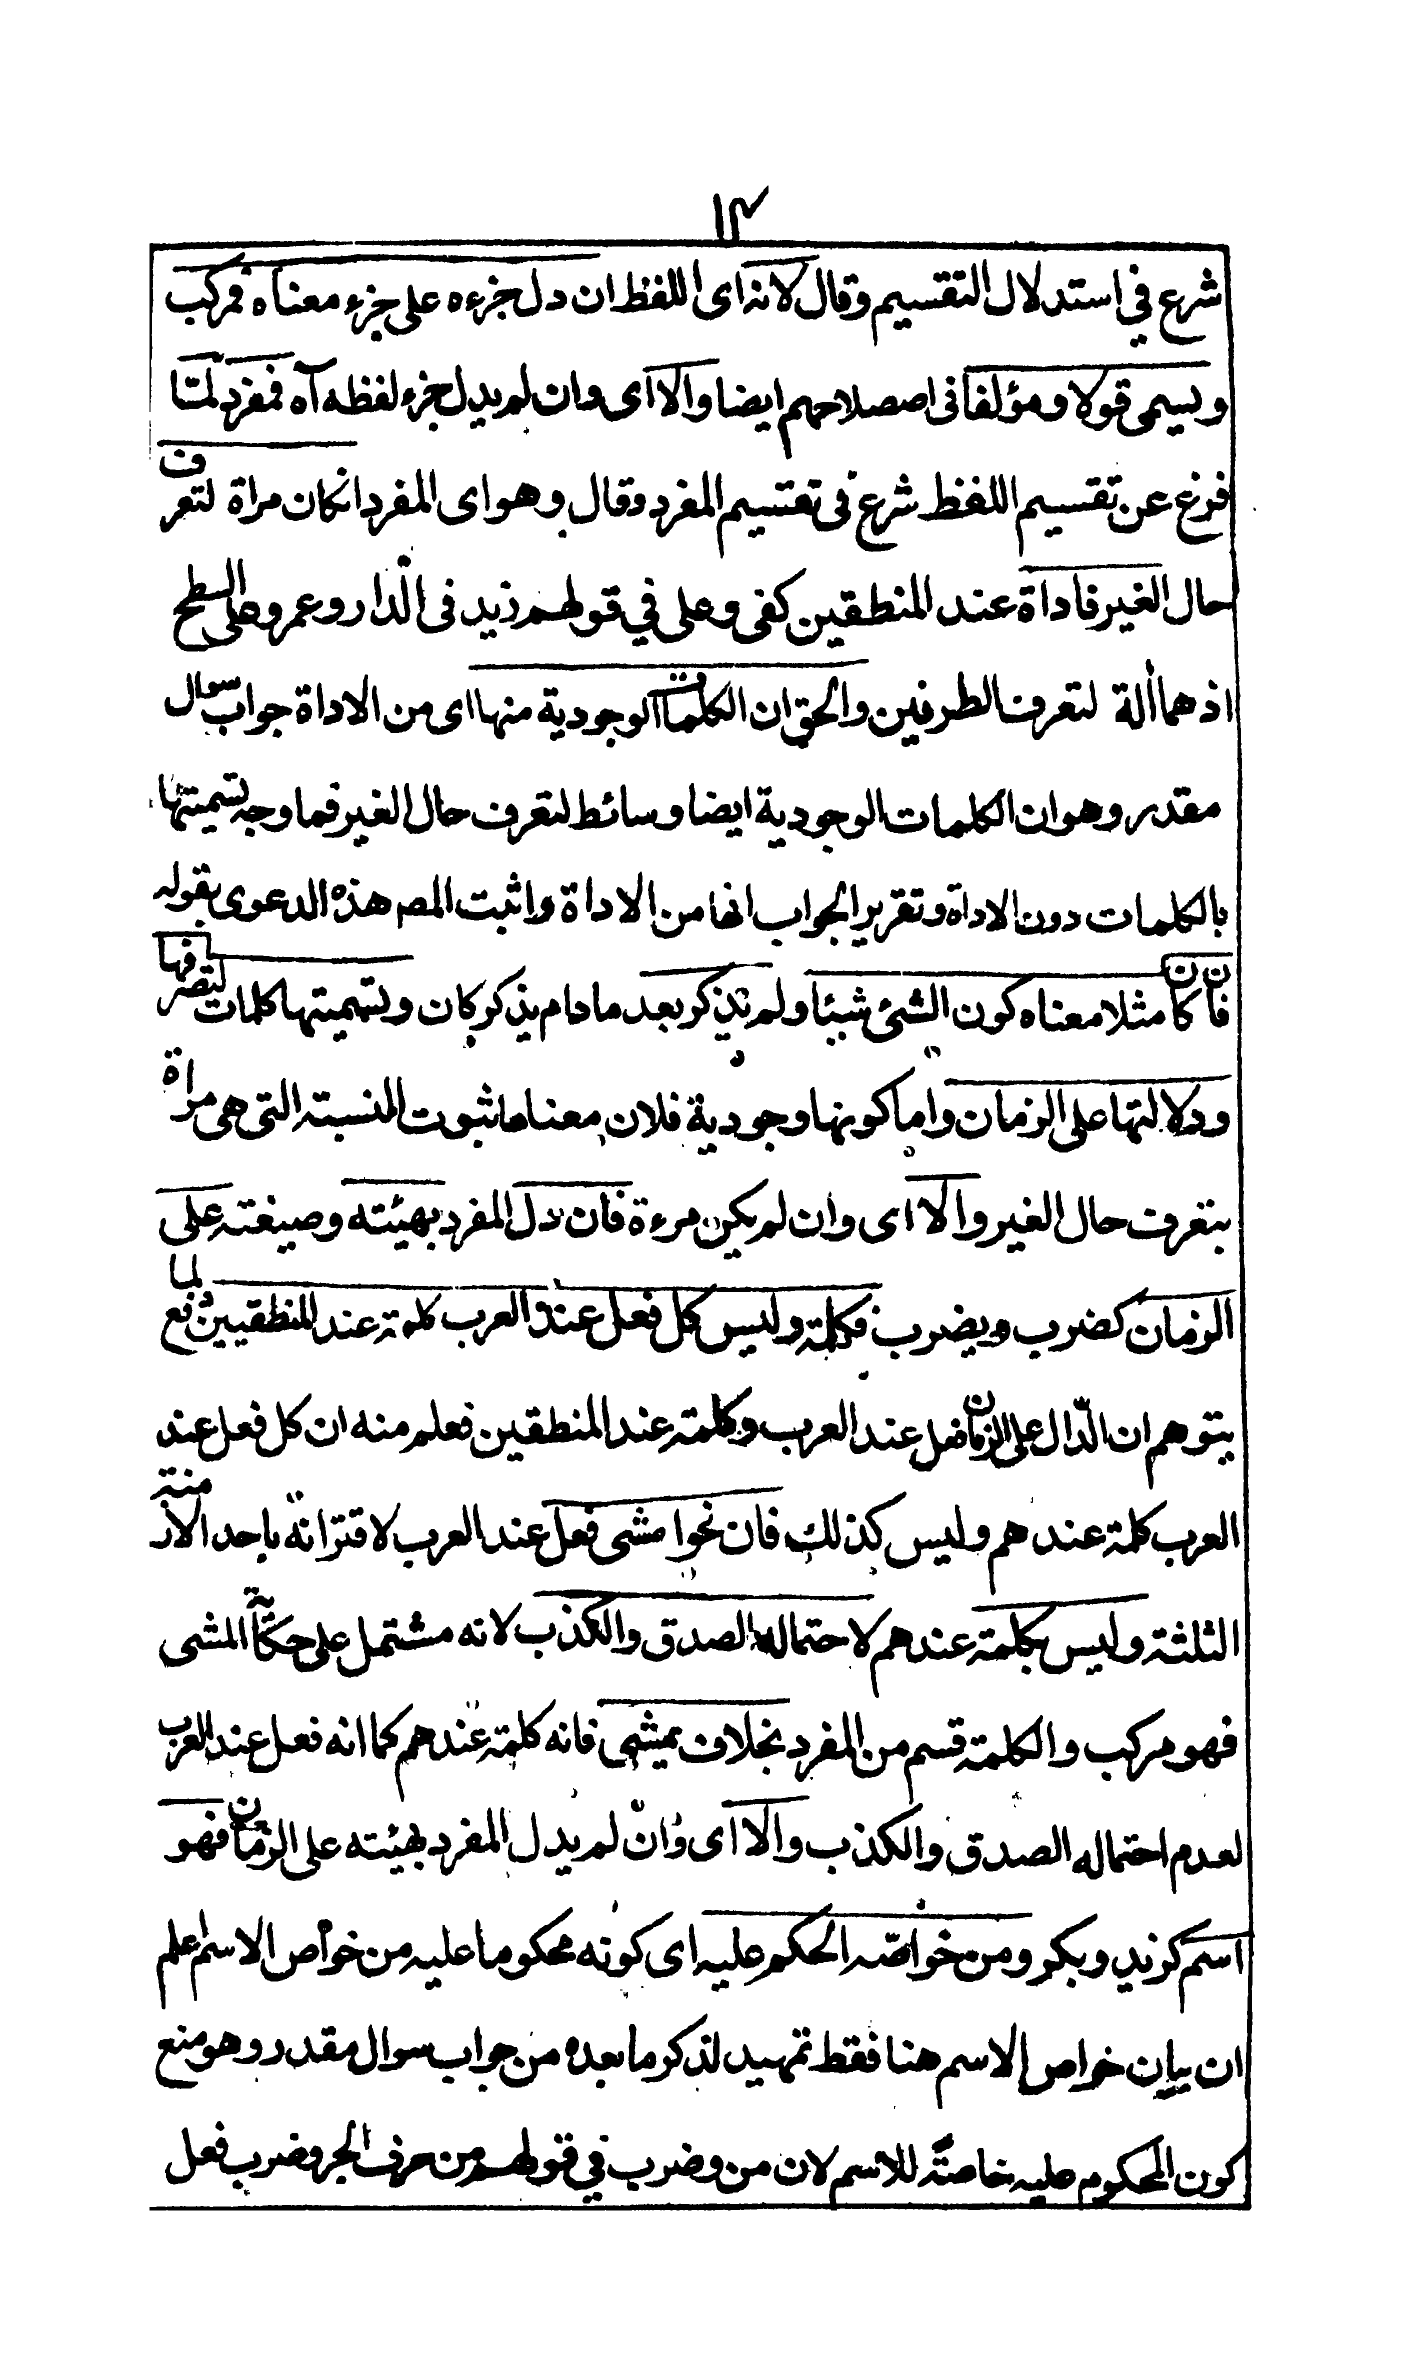 ١٣
شرع في استدلال التقسيم وقال لانه اى اللفظ ان دل جزءه على جزء معناه فمركب
ويسمى قولا ومؤلفا فى اصصلاحهم ايضا والا اى وان لم يدل جزء لفظه آه فمفرد لمّا
فرغ عن تقسيم اللفظ شرع فى تقسيم المفرد وقال وهو اى المفرد انكان مراة لتعرف
حال الغير فاداة عند المنطقين كفى وعلى في قولهم زيد فى الدار وعمر وعلى السطح
اذ هما ألة لتعرف الطرفين والحق ان الكلمات الوجودية منها اى من الاداة جواب سوال
مقدر وهو ان الكلمات الوجودية ايضا وسائط لتعرف حال الغير فما وجه تسميتها
بالكلمات دون الاداة وتقرير الجواب انها من الاداة واثبت المص هذه الدعوى بقوله
فان كان مثلا معناه كون الشئ شيئا ولم يذكر بعد ما دام يذكر كان وتسميتها كلمات لتصرفها
ودلالتها على الزمان واما كونها وجودية فلان معناها ثبوت النسبة التى هى مراة
بتعرف حال الغير والا اى وان لم يكن مرءة فان دل المفرد بهيئته وصيغته على
الزمان كضرب ويضرب فكلمة وليس كل فعل عند العرب كلمة عند المنطقيين دفع لما
يتوهم ان الدّال على الزمان فعل عند العرب وكلمة عند المنطقين فعلم منه ان كل فعل عند
العرب كلمة عندهم وليس كذلك فان نحو امشى فعل عند العرب لاقترانه باحد الازمنة
الثلثة وليس بكلمة عندهم لاحتماله الصدق والكذب لانه مشتمل على حكاية المشى
فهو مركب والكلمة قسم من المفرد بخلاف يمشى فانه كلمة عندهم كما انه فعل عند العرب
لعدم احتماله الصدق والكذب والا اى وان لم يدل المفرد بهيئته على الزمان فهو
اسم كزيد وبكر ومن خواصّه الحكم عليه اى كونه محكوما عليه من خواص الاسم اعلم
ان بيان خواص الاسم هنا فقط تمهيد لذكر ما بعده من جواب سوال مقدر وهو منع
كون المحكوم عليه خاصّة للاسم لان من وضرب في قولهم من حرف الجر وضرب فعل